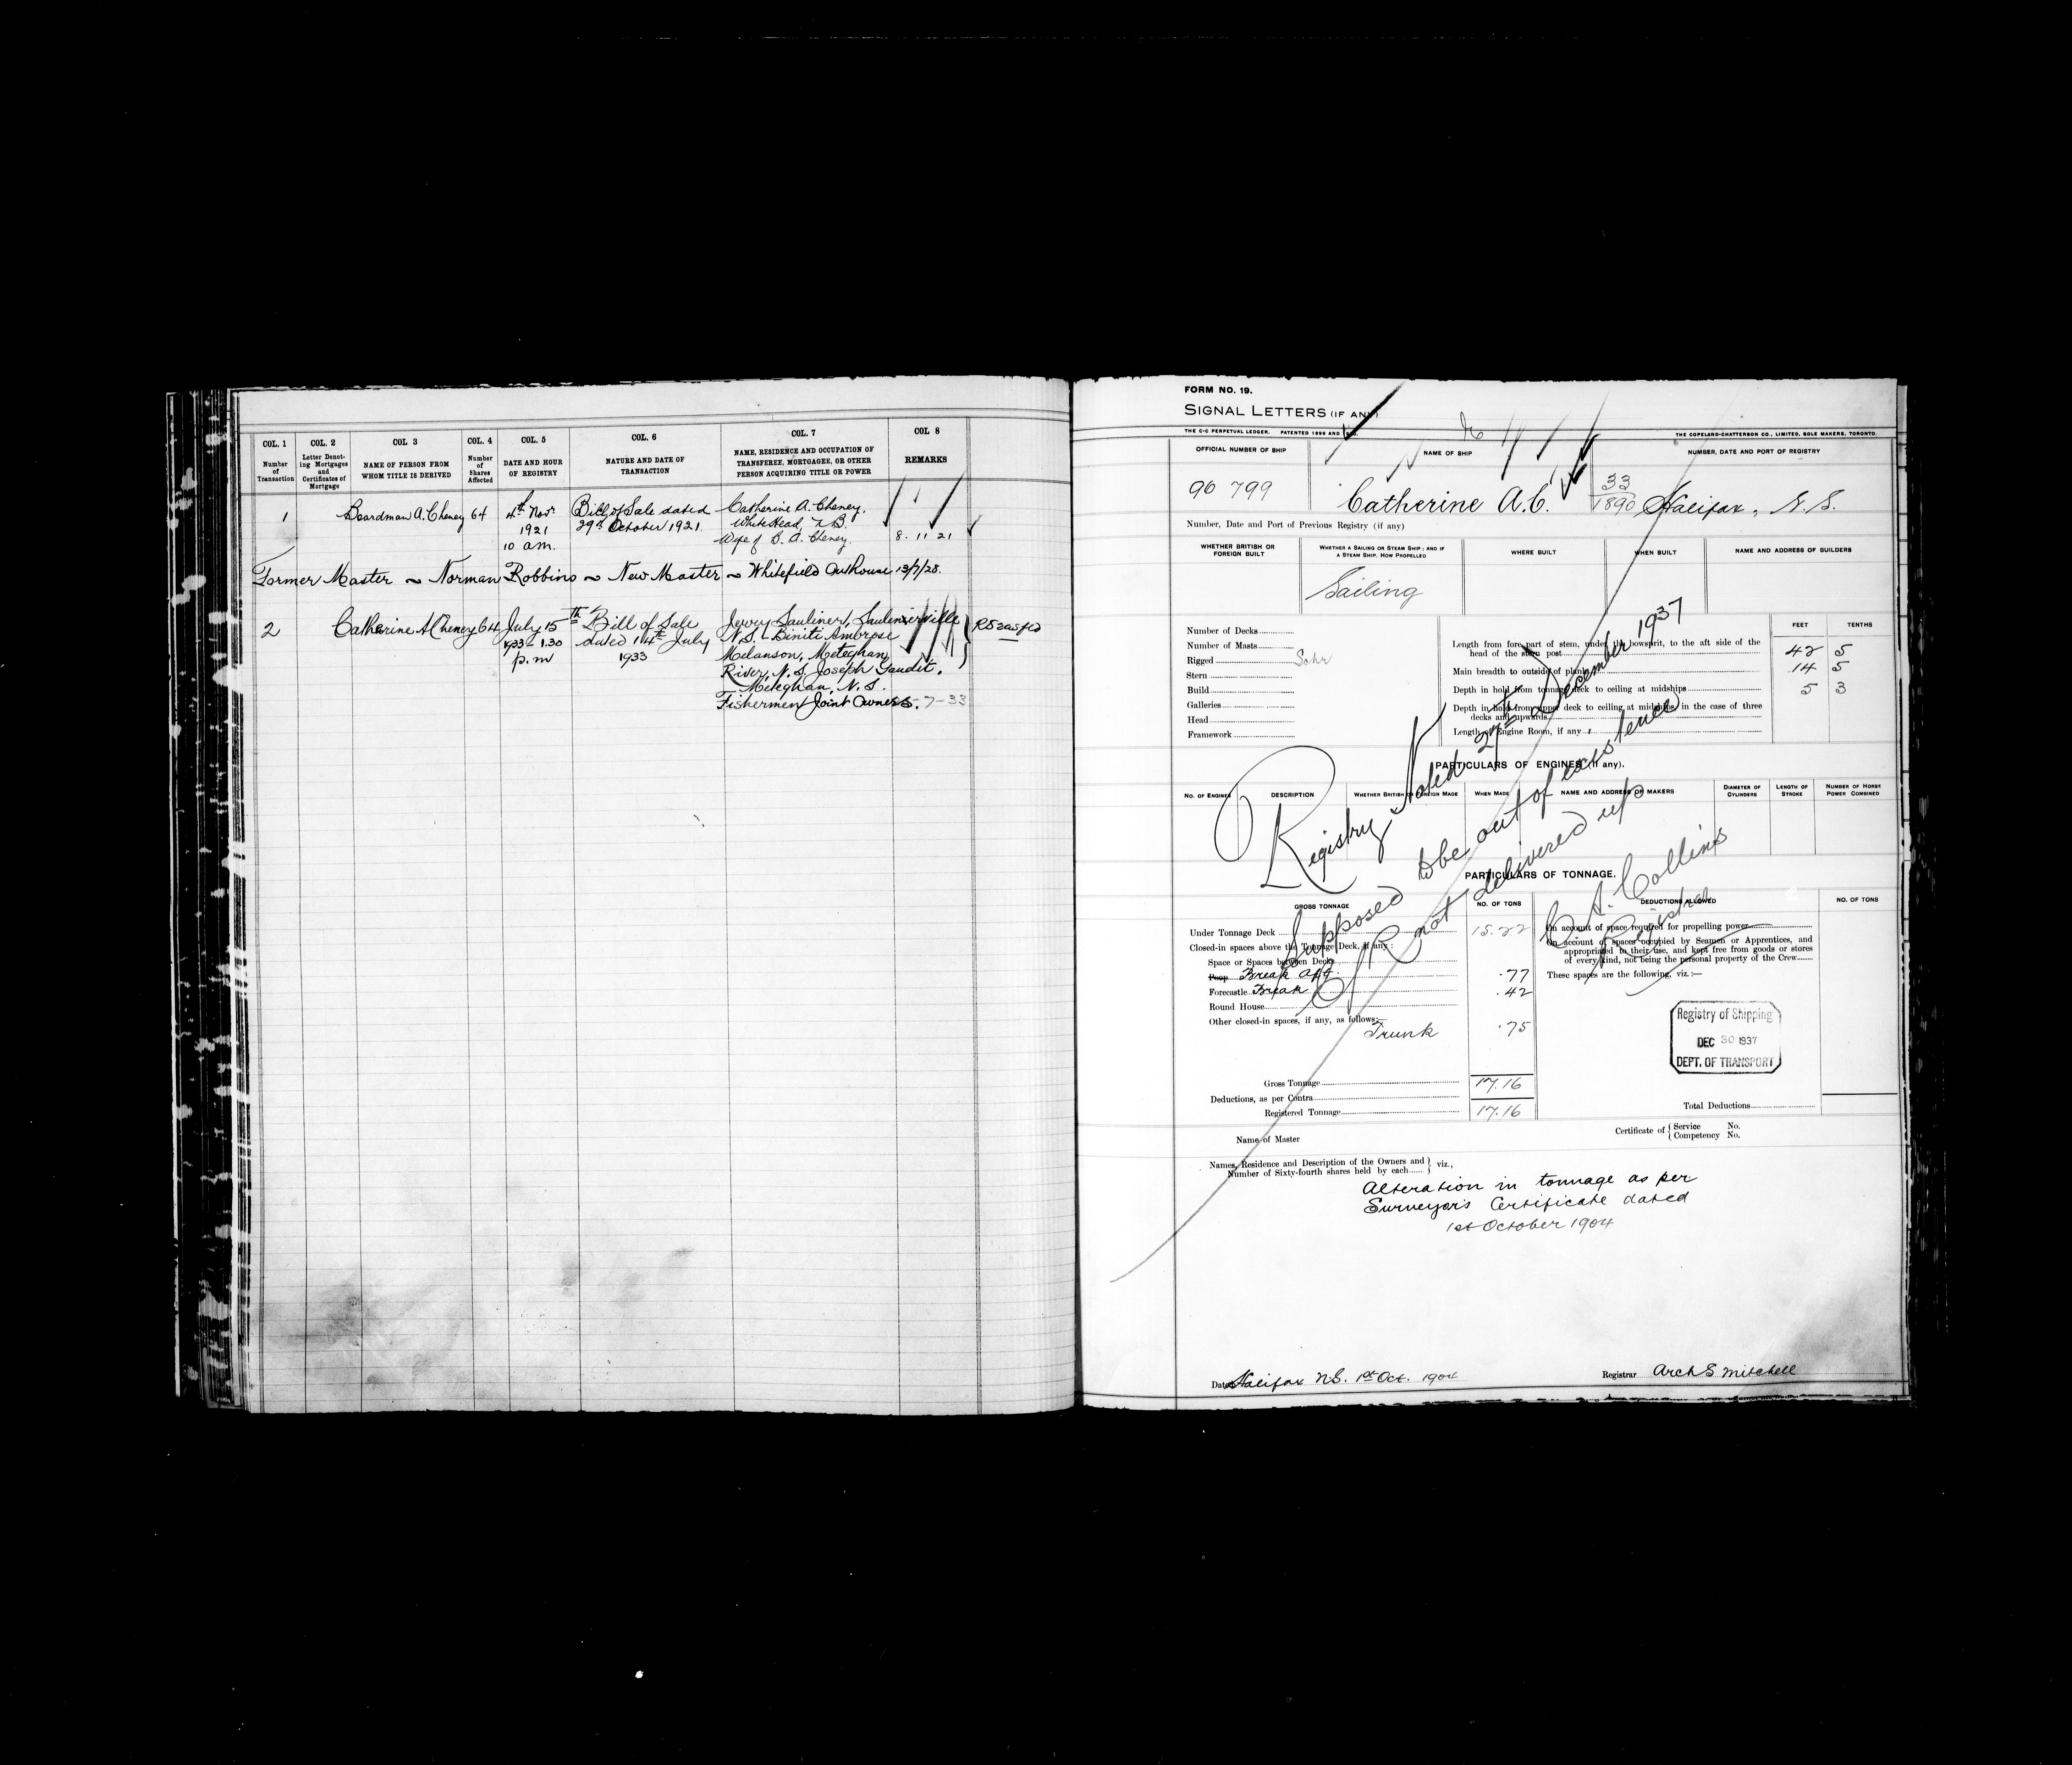 COL. 1
Number of Transaction
COL. 2
Letter Denoting Mortgages and Certificates of Mortgage
COL 3
NAME OF PERSON FROM WHOM TITLE IS DERIVED
COL. 4
Number of Shares Affected
COL. 5
DATE AND HOUR OF REGISTRY
COL. 6
NATURE AND DATE OF TRANSACTION
COL. 7
NAME, RESIDENCE AND OCCUPATION OF TRANSFEREE, MORTGAGEE, OR OTHER PERSON ACQUIRING TITLE OR POWER
COL 8
REMARKS
1 Boardman A. Cheney 64 4th Nov. Bill of Sale dated Catherine A. Cheney,
1921 29th October 1921. White Head, N.B.
10 a.m. Wife of B. A. Cheney. 8. 11 21
Former Master ~ Norman Robbins ~ New Master ~ Whitefield Outhouse 13/7/28.
2 Catherine A Cheney 64 July 15th Bill of Sale Jerry Saulnier, Saulnierville
1933 1.30 dated 14th July N.S. Biniti Ambrose
p.m 1933 Melanson, Meteghan
River, N.S. Joseph Gaudit,
Meteghan, N.S.
Fishermen Joint Owners. 7-33
FORM NO. 19.
SIGNAL LETTERS (IF ANY)
THE C-C PERPETUAL LEDGER. PATENTED 1896 AND
THE COPELAND-CHATTERSON CO., LIMITED, SOLE MAKERS, TORONTO.
OFFICIAL NUMBER OF SHIP
NAME OF SHIP
NUMBER, DATE AND PORT OF REGISTRY
90 799 Catherine A.C. 33/1890 Halifax, N.S.
Number, Date and Port of Previous Registry (if any)
WHETHER BRITISH OR FOREIGN BUILT
WHETHER A SAILING OR STEAM SHIP; AND IF A STEAM SHIP, HOW PROPELLED
WHERE BUILT
WHEN BUILT
NAME AND ADDRESS OF BUILDERS
Sailing
FEET TENTHS
Number of Decks
Number of Masts
Rigged Schr
Stern
Build
Galleries
Head
Framework
Length from fore part of stem, under the bowsprit, to the aft side of the head of the stern post 42 5
Main breadth to outside of plank 14 5
Depth in hold from tonnage deck to ceiling at midships 5 3
Depth in hold from upper deck to ceiling at midships, in the case of three decks and upwards
Length of Engine Room, if any
PARTICULARS OF ENGINES (if any).
NO. OF ENGINES
DESCRIPTION
WHETHER BRITISH OR FOREIGN MADE
WHEN MADE
NAME AND ADDRESS OF MAKERS
DIAMETER OF CYLINDERS
LENGTH OF STROKE
NUMBER OF HORSE POWER COMBINED
Registry Noted 27th December 1937
Supposed to be out of existence
C of R not delivered up
A. Collins
Registrar
PARTICULARS OF TONNAGE.
GROSS TONNAGE
NO. OF TONS
DEDUCTIONS ALLOWED
NO. OF TONS
Under Tonnage Deck 15.22
Closed-in spaces above the Tonnage Deck, if any:
Space or Spaces between Decks
Poop Break aft .77
Forecastle Break .42
Round House
Other closed-in spaces, if any, as follows:
Trunk .75
Gross Tonnage 17.16
Deductions, as per Contra
Registered Tonnage 17.16
On account of space required for propelling power
On account of spaces occupied by Seamen or Apprentices, and appropriated to their use, and kept free from goods or stores of every kind, not being the personal property of the Crew
These spaces are the following, viz.:—
Registry of Shipping
DEC 30 1937
DEPT. OF TRANSPORT
Total Deductions
Name of Master
Certificate of { Service No.
Competency No.
Names, Residence and Description of the Owners and Number of Sixty-fourth shares held by each } viz.,
Alteration in tonnage as per
Surveyor's Certificate dated
1st October 1904
Dated Halifax N.S. 1st Oct. 1904
Registrar Arch S Mitchell